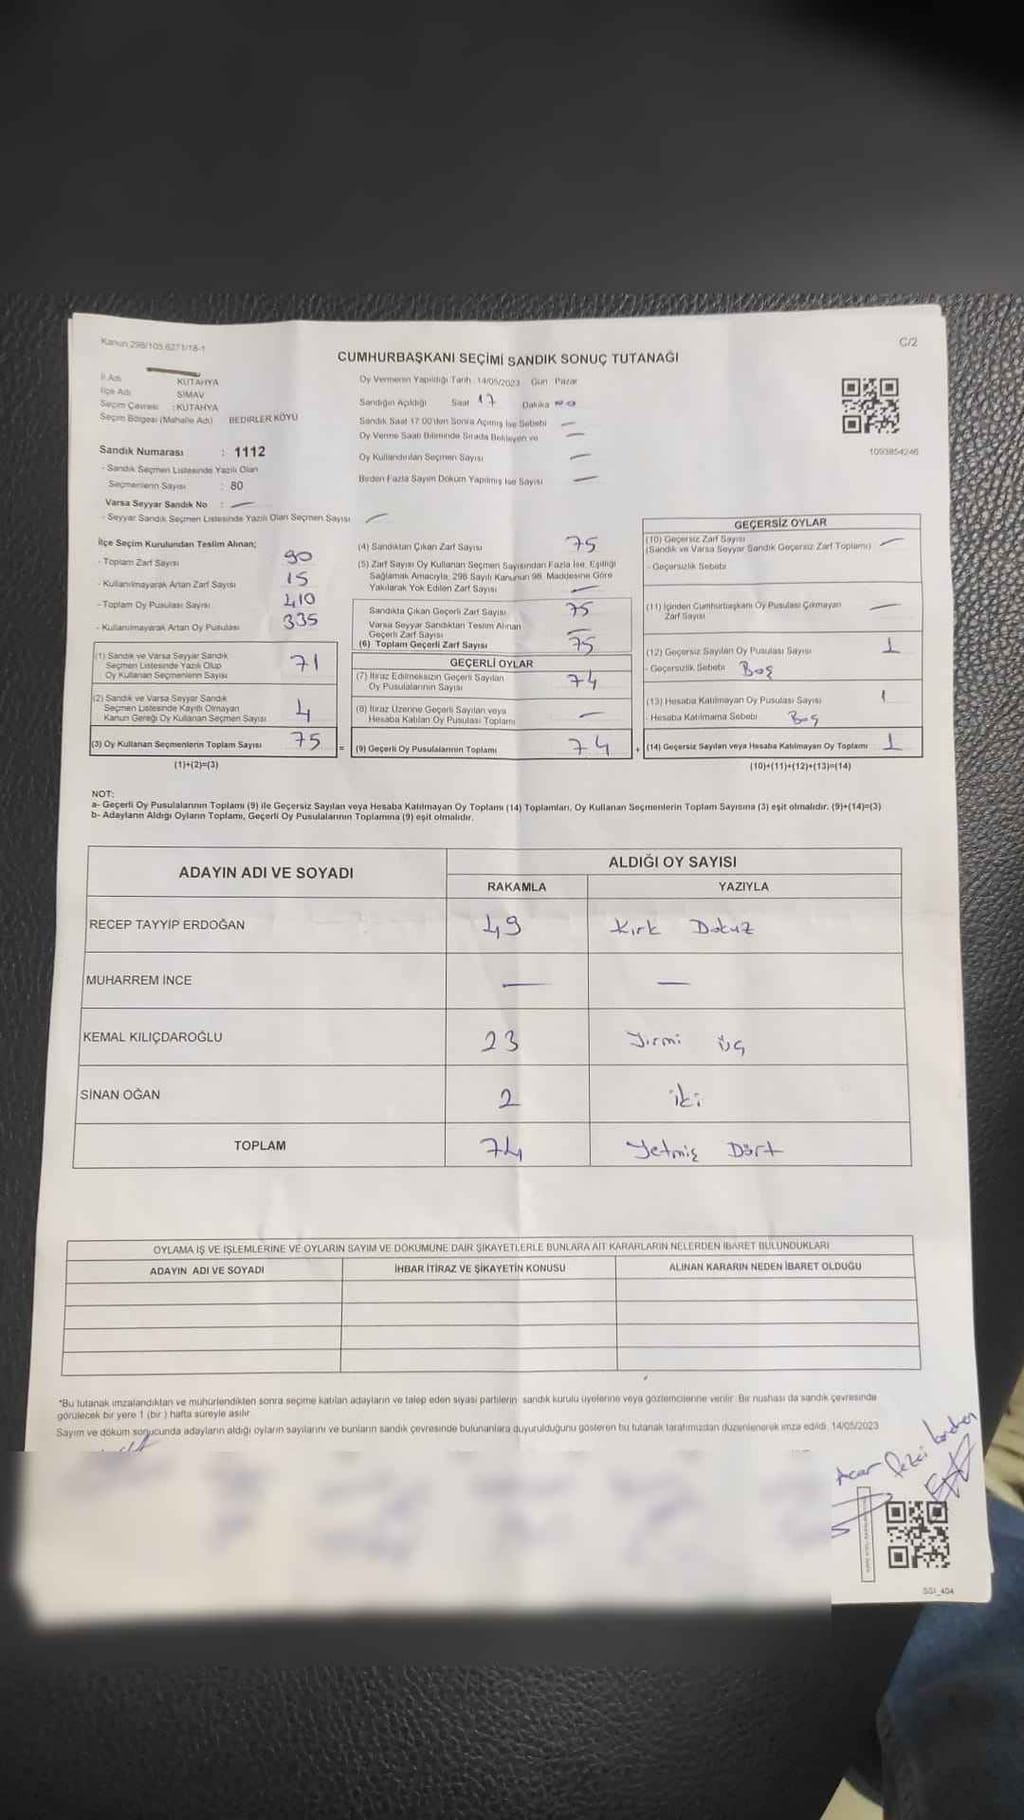 Kanun 298/105,6271/18-1
C/2
CUMHURBAŞKANI SEÇİMİ SANDIK SONUÇ TUTANAĞI
İl Adı : KÜTAHYA
İlçe Adı SİMAV
Seçim Çevresi : KÜTAHYA
Seçim Bölgesi (Mahalle Adı) BEDİRLER KÖYÜ
Sandık Numarası : 1112
- Sandık Seçmen Listesinde Yazılı Olan
Seçmenlerin Sayısı : 80
Varsa Seyyar Sandık No : —
- Seyyar Sandık Seçmen Listesinde Yazılı Olan Seçmen Sayısı —
Oy Vermenin Yapıldığı Tarih 14/05/2023 Gün Pazar
Sandığın Açıldığı Saat 17 Dakika
Sandık Saat 17:00'den Sonra Açılmış İse Sebebi —
Oy Verme Saati Bitiminde Sırada Bekleyen ve —
Oy Kullandırılan Seçmen Sayısı —
Birden Fazla Sayım Döküm Yapılmış İse Sayısı —
1093854246
İlçe Seçim Kurulundan Teslim Alınan;
- Toplam Zarf Sayısı 90
- Kullanılmayarak Artan Zarf Sayısı 15
- Toplam Oy Pusulası Sayısı 410
- Kullanılmayarak Artan Oy Pusulası 335
(1) Sandık ve Varsa Seyyar Sandık
Seçmen Listesinde Yazılı Olup
Oy Kullanan Seçmenlerin Sayısı 71
(2) Sandık ve Varsa Seyyar Sandık
Seçmen Listesinde Kayıtlı Olmayan
Kanun Gereği Oy Kullanan Seçmen Sayısı 4
(3) Oy Kullanan Seçmenlerin Toplam Sayısı 75
(1)+(2)=(3)
(4) Sandıktan Çıkan Zarf Sayısı 75
(5) Zarf Sayısı Oy Kullanan Seçmen Sayısından Fazla İse, Eşitliği
Sağlamak Amacıyla, 298 Sayılı Kanunun 98. Maddesine Göre
Yakılarak Yok Edilen Zarf Sayısı —
Sandıkta Çıkan Geçerli Zarf Sayısı 75
Varsa Seyyar Sandıktan Teslim Alınan
Geçerli Zarf Sayısı —
(6) Toplam Geçerli Zarf Sayısı 75
GEÇERLİ OYLAR
(7) İtiraz Edilmeksizin Geçerli Sayılan
Oy Pusulalarının Sayısı 74
(8) İtiraz Üzerine Geçerli Sayılan veya
Hesaba Katılan Oy Pusulası Toplamı —
= (9) Geçerli Oy Pusulalarının Toplamı 74 +
GEÇERSİZ OYLAR
(10) Geçersiz Zarf Sayısı
(Sandık ve Varsa Seyyar Sandık Geçersiz Zarf Toplamı) —
- Geçersizlik Sebebi
(11) İçinden Cumhurbaşkanı Oy Pusulası Çıkmayan
Zarf Sayısı —
(12) Geçersiz Sayılan Oy Pusulası Sayısı 1
- Geçersizlik Sebebi Boş
(13) Hesaba Katılmayan Oy Pusulası Sayısı 1
- Hesaba Katılmama Sebebi Boş
(14) Geçersiz Sayılan veya Hesaba Katılmayan Oy Toplamı 1
(10)+(11)+(12)+(13)=(14)
NOT:
a- Geçerli Oy Pusulalarının Toplamı (9) ile Geçersiz Sayılan veya Hesaba Katılmayan Oy Toplamı (14) Toplamları, Oy Kullanan Seçmenlerin Toplam Sayısına (3) eşit olmalıdır. (9)+(14)=(3)
b- Adayların Aldığı Oyların Toplamı, Geçerli Oy Pusulalarının Toplamına (9) eşit olmalıdır.
ADAYIN ADI VE SOYADI
ALDIĞI OY SAYISI
RAKAMLA YAZIYLA
RECEP TAYYİP ERDOĞAN 49 Kırk Dokuz
MUHARREM İNCE — —
KEMAL KILIÇDAROĞLU 23 Yirmi üç
SİNAN OĞAN 2 iki
TOPLAM 74 Yetmiş Dört
OYLAMA İŞ VE İŞLEMLERİNE VE OYLARIN SAYIM VE DÖKÜMÜNE DAİR ŞİKAYETLERLE BUNLARA AİT KARARLARIN NELERDEN İBARET BULUNDUKLARI
ADAYIN ADI VE SOYADI İHBAR İTİRAZ VE ŞİKAYETİN KONUSU ALINAN KARARIN NEDEN İBARET OLDUĞU
*Bu tutanak imzalandıktan ve mühürlendikten sonra seçime katılan adayların ve talep eden siyasi partilerin sandık kurulu üyelerine veya gözlemcilerine verilir. Bir nüshası da sandık çevresinde
görülecek bir yere 1 (bir) hafta süreyle asılır.
Sayım ve döküm sonucunda adayların aldığı oyların sayılarını ve bunların sandık çevresinde bulunanlara duyurulduğunu gösteren bu tutanak tarafımızdan düzenlenerek imza edildi. 14/05/2023
SGI_404